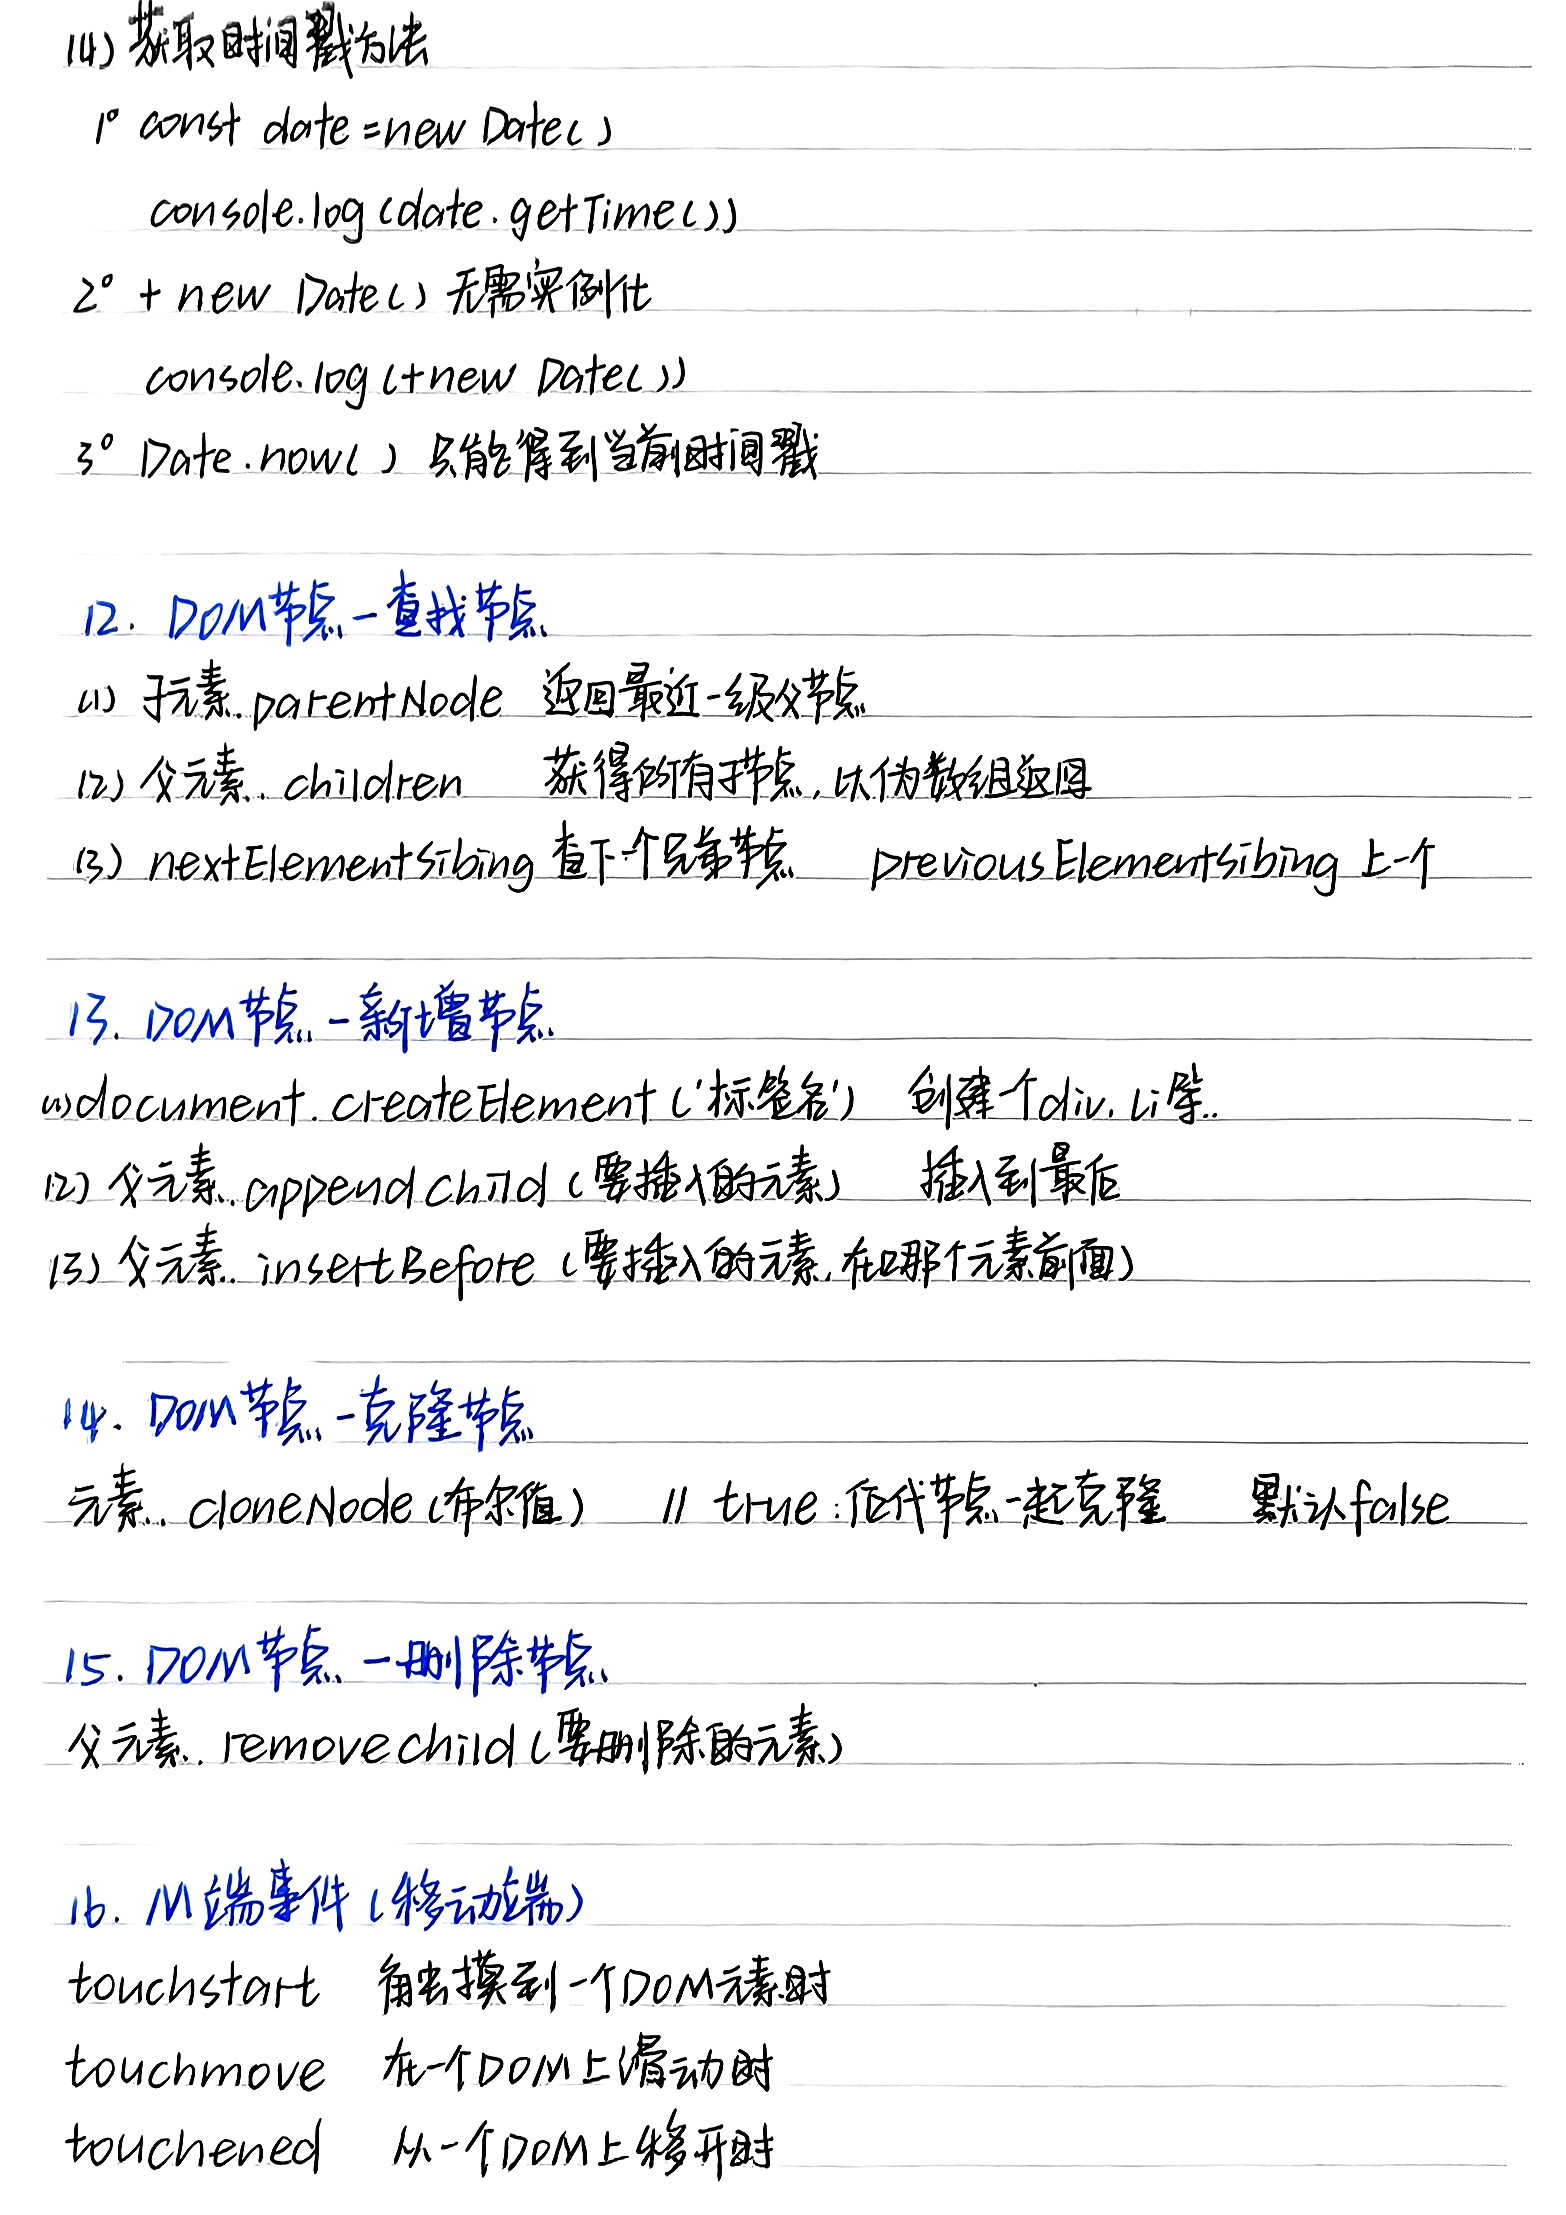 (4) 获取时间戳方法
1° const date = new Date()
console.log(date.getTime())
2° + new Date() 无需实例化
console.log(+new Date())
3° Date.now() 只能得到当前时间戳
12. DOM节点-查找节点
(1) 子元素.parentNode 返回最近一级父节点
(2) 父元素.children 获得所有子节点,以伪数组返回
(3) nextElementSibing 查下一个兄弟节点 previousElementSibing 上一个
13. DOM节点-新增节点
(1) document.createElement('标签名') 创建个div.li等..
(2) 父元素.appendchild(要插入的元素) 插入到最后
(3) 父元素.insertBefore(要插入的元素,在哪个元素前面)
14. DOM节点-克隆节点
元素.cloneNode(布尔值) // true:后代节点一起克隆 默认false
15. DOM节点-删除节点
父元素.removechild(要删除的元素)
16. M端事件(移动端)
touchstart 触摸到一个DOM元素时
touchmove 在一个DOM上滑动时
touchened 从一个DOM上移开时